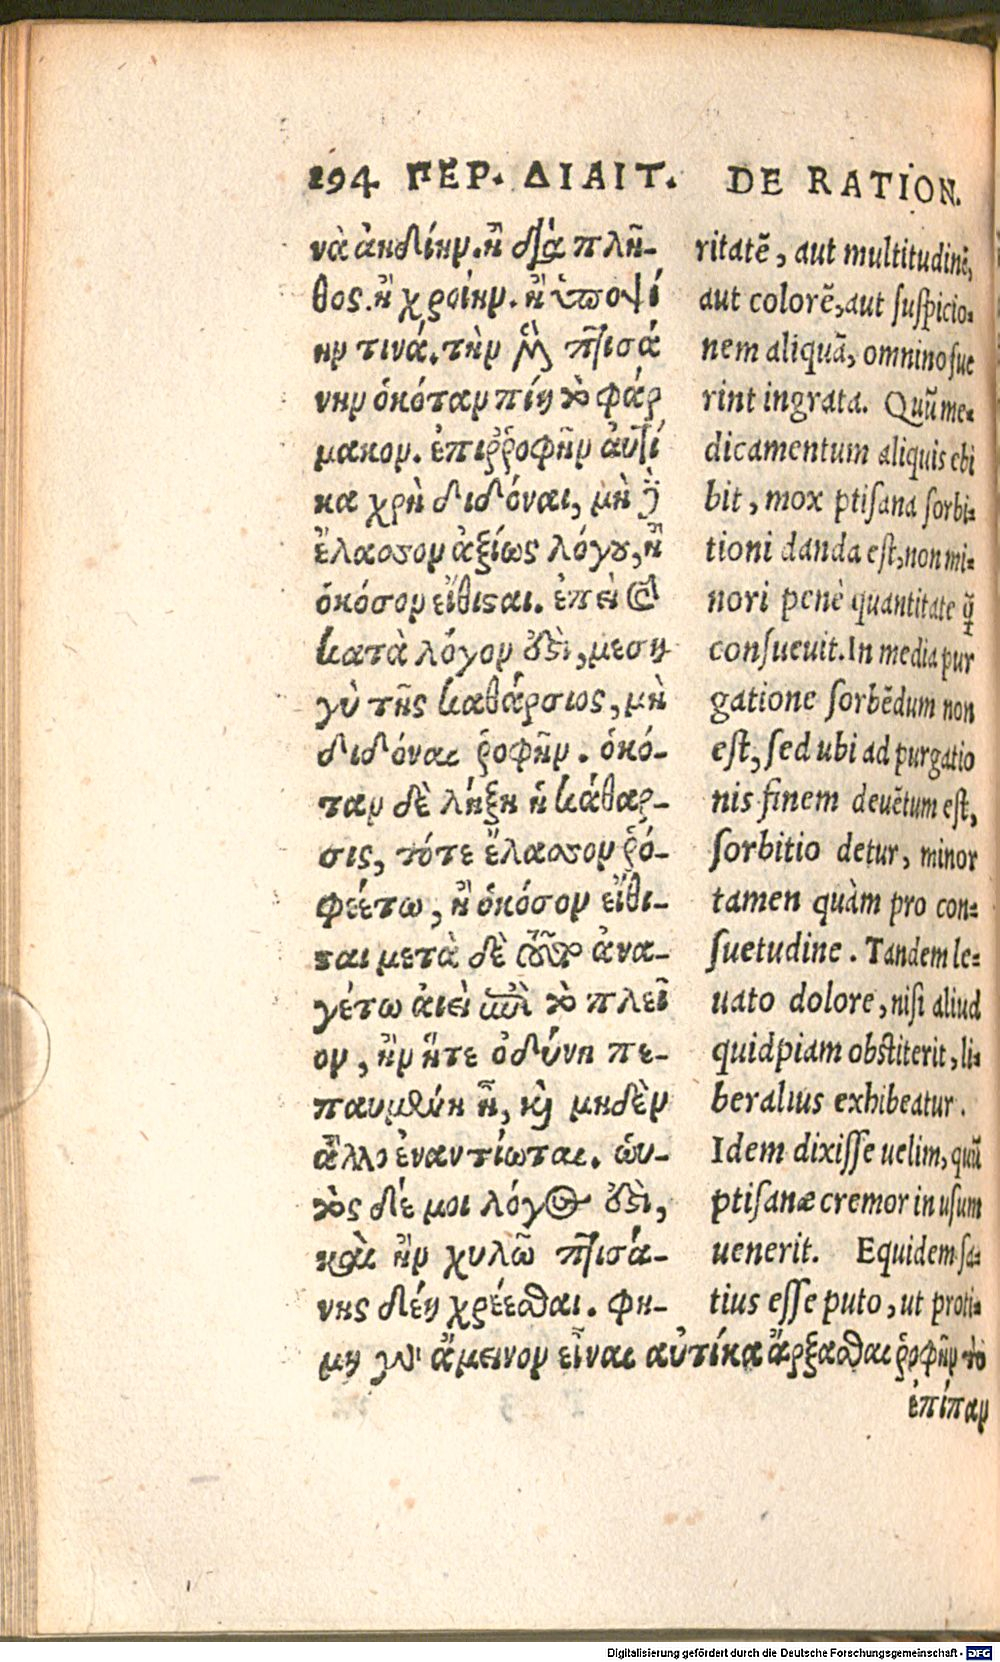 294 ΠΕΡ. ΔΙΑΙΤ. DE RATION.
νὰ ἀηδίην. ἢ διὰ πλῆ-
θος. ἢ χροίην. ἢ ὑποψί
ην τινά. τὴν δὲ πτισά
νην ὁκόταν πίῃ τὸ φάρ
μακον. ἐπιῤῥοφῆν αὐτί
κα χρὴ διδόναι, μὴ
ἔλασσον ἀξίως λόγου, ἢ
ὁκόσον εἴθισται. ἐπεὶ καὶ
κατὰ λόγον ἐστὶ, μεση
γὺ τῆς καθάρσιος, μὴ
διδόναι ῥοφῆν. ὁκό-
ταν δὲ λήξῃ ἡ κάθαρ-
σις, τότε ἔλασσον ῥο-
φεέτω, ἢ ὁκόσον εἴθι-
ται μετὰ δὲ τοῦτο ἀνα-
γέτω αἰεὶ ἐπὶ τὸ πλεῖ
ον, ἢν ἥτε ὀδύνη πε-
παυμένη ᾖ, καὶ μηδὲν
ἄλλο ἐναντίωται. ὡυ-
τὸς δέ μοι λόγος ἐστὶ,
κἂν ἢν χυλῶ πτισά-
νης δέῃ χρέεσθαι. φη-
μὴ γὰρ ἄμεινον εἶναι αὐτίκα ἄρξασθαι ῥοφῆν τὸ
ἐπίπαν
ritatẽ, aut multitudinẽ,
aut colorẽ, aut suspicio=
nem aliquã, omnino fue
rint ingrata. Quũ me=
dicamentum aliquis ebi
bit, mox ptisana sorbi=
tioni danda est, non mi=
nori penè quantitate q̃
consueuit. In media pur
gatione sorbẽdum non
est, sed ubi ad purgatio
nis finem deuẽtum est,
sorbitio detur, minor
tamen quàm pro con=
suetudine. Tandem le=
uato dolore, nisi aliud
quidpiam obstiterit, li=
beralius exhibeatur.
Idem dixisse uelim, quũ
ptisanæ cremor in usum
uenerit. Equidem sa=
tius esse puto, ut proti=
Digitalisierung gefördert durch die Deutsche Forschungsgemeinschaft - DFG